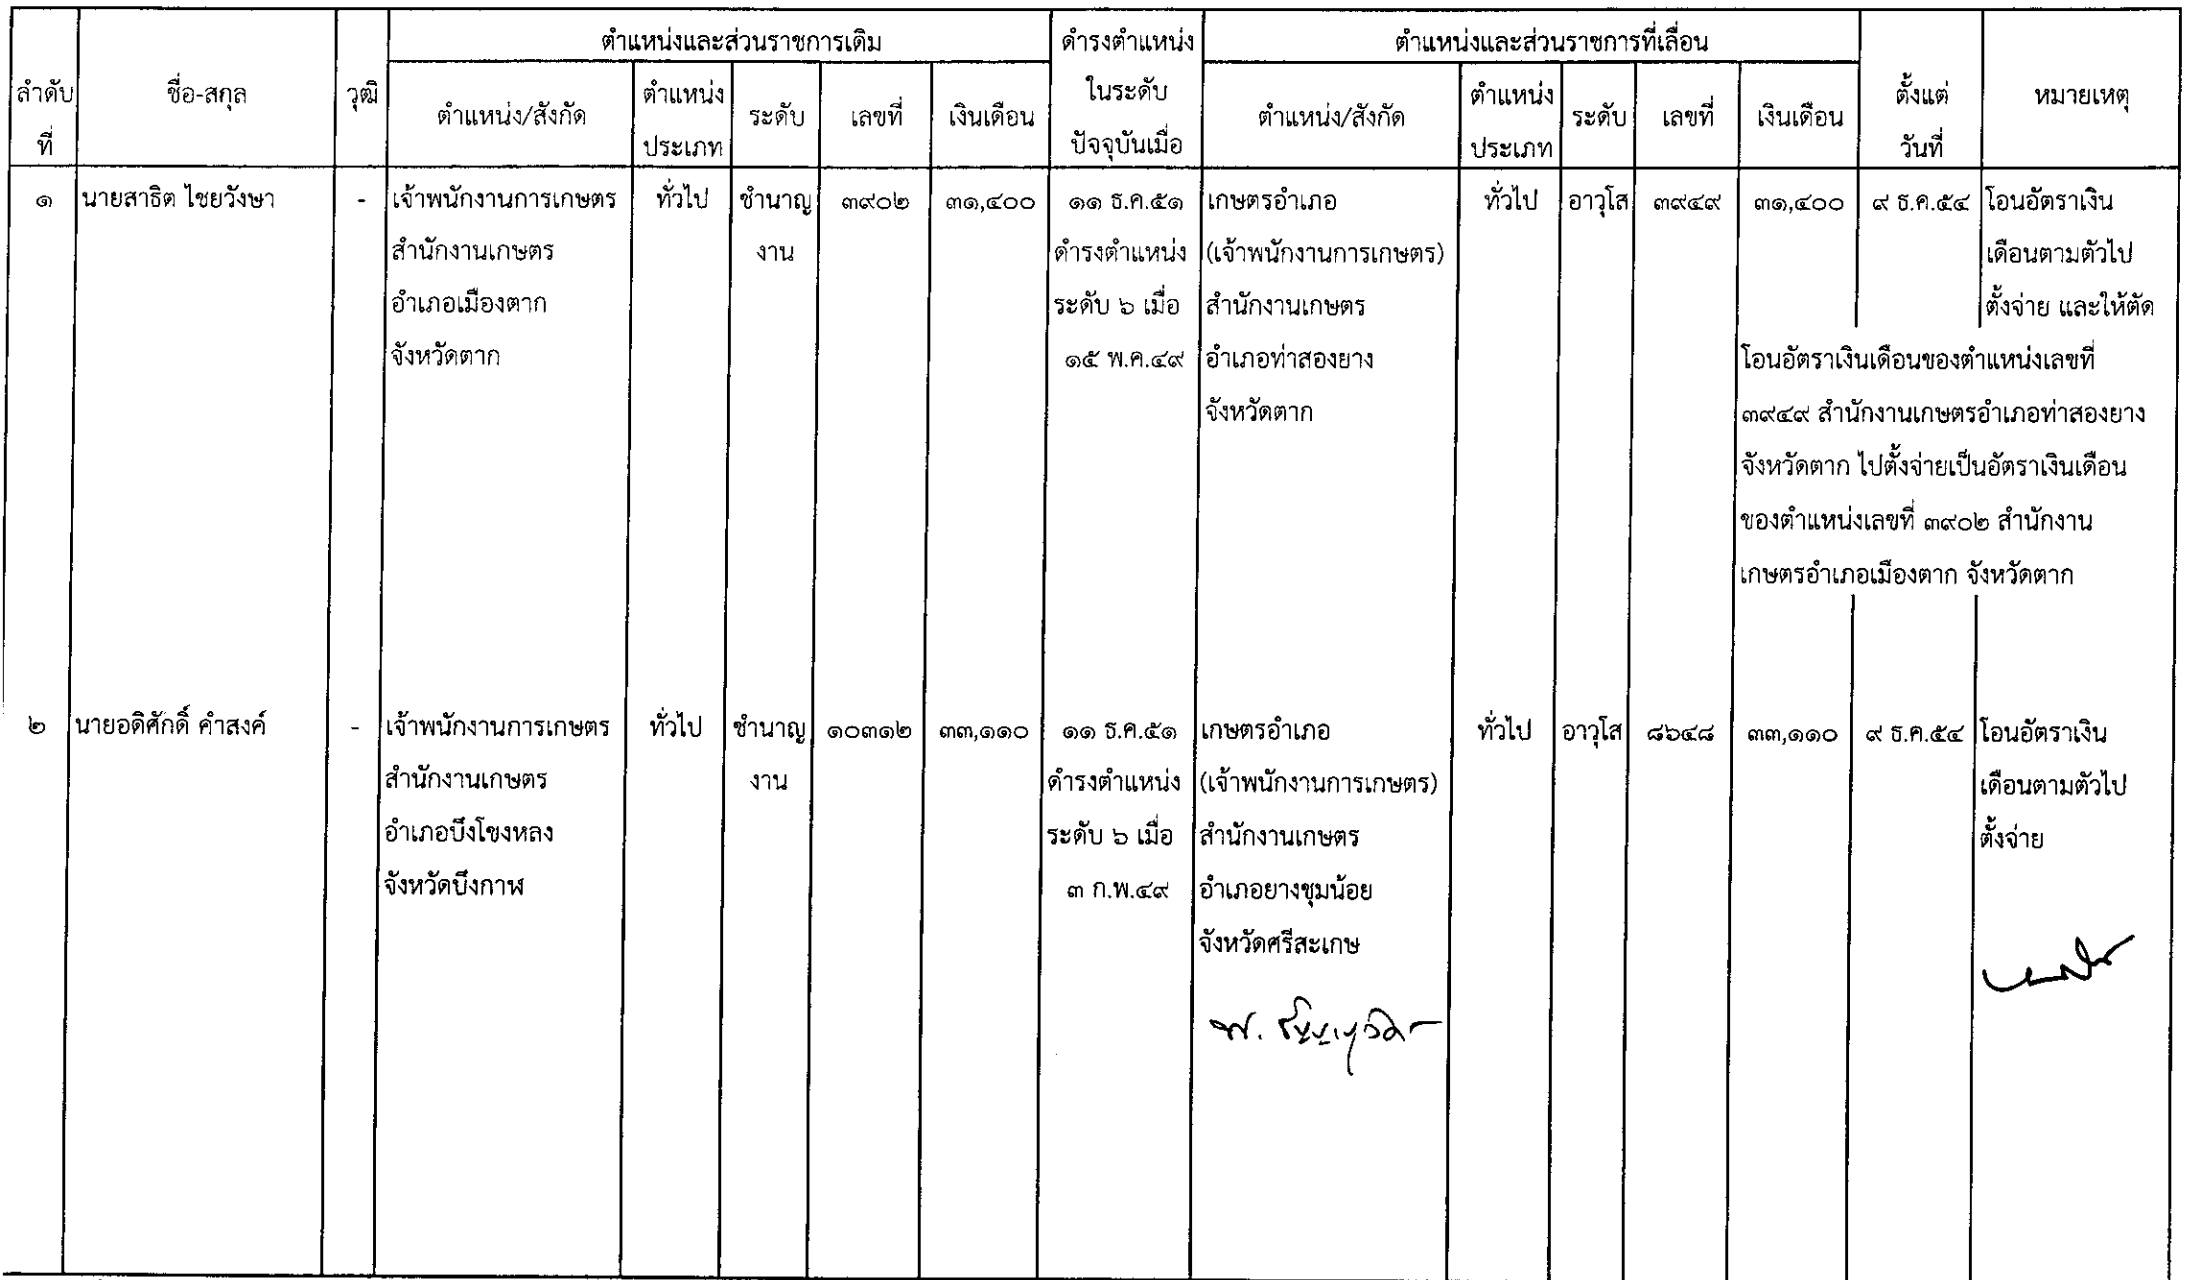 ลำดับ
ที่
ชื่อ-สกุล
วุฒิ
ตำแหน่งและส่วนราชการเดิม
ตำแหน่ง/สังกัด
ตำแหน่ง
ประเภท
ระดับ
เลขที่
เงินเดือน
ดำรงตำแหน่ง
ในระดับ
ปัจจุบันเมื่อ
ตำแหน่งและส่วนราชการที่เลื่อน
ตำแหน่ง/สังกัด
ตำแหน่ง
ประเภท
ระดับ
เลขที่
เงินเดือน
ตั้งแต่
วันที่
หมายเหตุ
๑
นายสาธิต ไชยวังษา
-
เจ้าพนักงานการเกษตร
สำนักงานเกษตร
อำเภอเมืองตาก
จังหวัดตาก
ทั่วไป
ชำนาญ
งาน
๓๙๐๒
๓๑,๔๐๐
๑๑ ธ.ค.๕๑
ดำรงตำแหน่ง
ระดับ ๖ เมื่อ
๑๕ พ.ค.๔๙
เกษตรอำเภอ
(เจ้าพนักงานการเกษตร)
สำนักงานเกษตร
อำเภอท่าสองยาง
จังหวัดตาก
ทั่วไป
อาวุโส
๓๙๔๙
๓๑,๔๐๐
๙ ธ.ค.๕๔
โอนอัตราเงิน
เดือนตามตัวไป
ตั้งจ่าย และให้ตัด
โอนอัตราเงินเดือนของตำแหน่งเลขที่
๓๙๔๙ สำนักงานเกษตรอำเภอท่าสองยาง
จังหวัดตาก ไปตั้งจ่ายเป็นอัตราเงินเดือน
ของตำแหน่งเลขที่ ๓๙๐๒ สำนักงาน
เกษตรอำเภอเมืองตาก จังหวัดตาก
๒
นายอดิศักดิ์ คำสงค์
-
เจ้าพนักงานการเกษตร
สำนักงานเกษตร
อำเภอบึงโขงหลง
จังหวัดบึงกาฬ
ทั่วไป
ชำนาญ
งาน
๑๐๓๑๒
๓๓,๑๑๐
๑๑ ธ.ค.๕๑
ดำรงตำแหน่ง
ระดับ ๖ เมื่อ
๓ ก.พ.๔๙
เกษตรอำเภอ
(เจ้าพนักงานการเกษตร)
สำนักงานเกษตร
อำเภอยางชุมน้อย
จังหวัดศรีสะเกษ
ทั่วไป
อาวุโส
๘๖๔๘
๓๓,๑๑๐
๙ ธ.ค.๕๔
โอนอัตราเงิน
เดือนตามตัวไป
ตั้งจ่าย